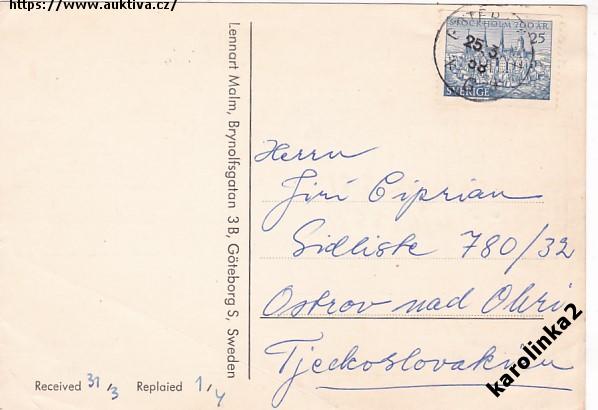 https://www.auktiva.cz/
STOCKHOLM 700 ÅR
25
25.3.
58
SVERIGE
Lennart Malm, Brynolfsgatan 3B, Göteborg S, Sweden
Herrn
Jiri Ciprian
Sidliste 780/32
Ostrov nad Ohri
Tjeckoslovakien
Received 31/3 Replaied 1/4
karolinka2